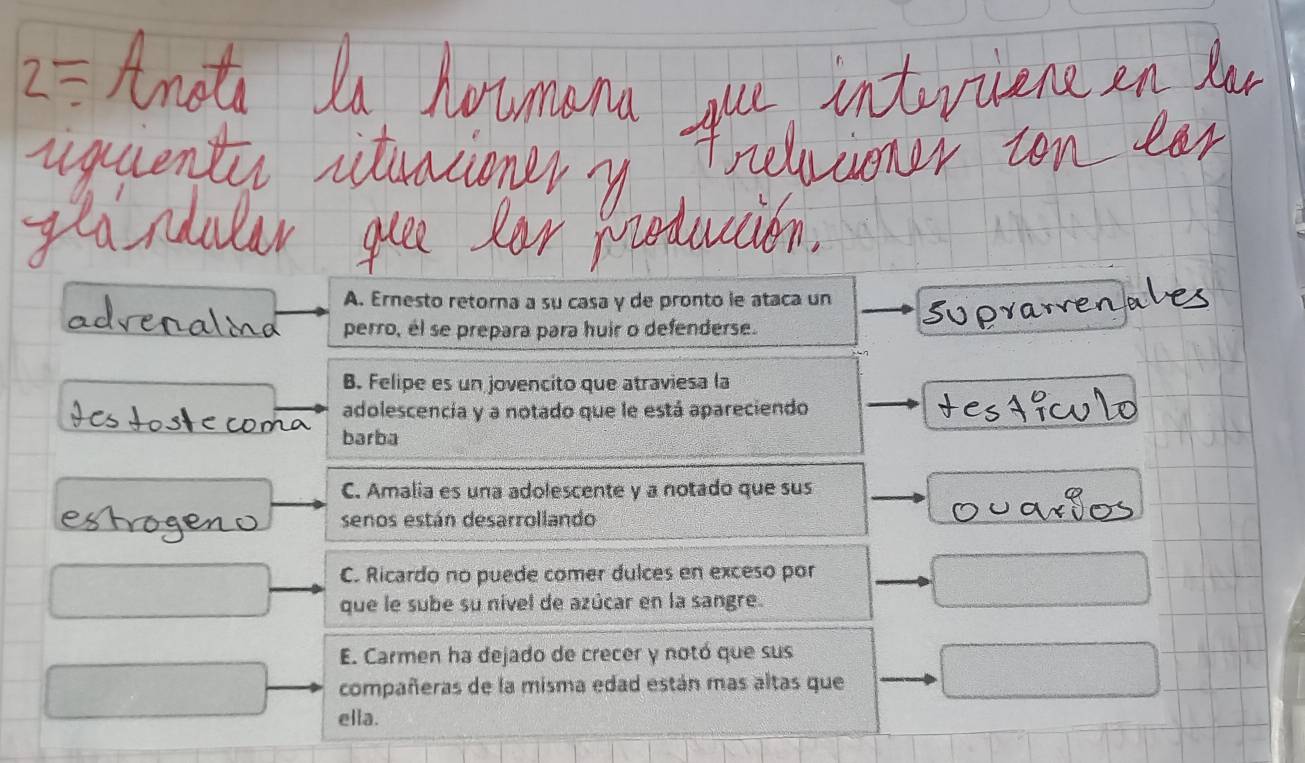 2= Anota la hormona que interviene en las
siguientes situaciones y relaciones con las
glándulas que las producción.
adrenalina
A. Ernesto retorna a su casa y de pronto le ataca un
perro, él se prepara para huir o defenderse.
suprarrenales
testostecoma
B. Felipe es un jovencito que atraviesa la
adolescencia y a notado que le está apareciendo
barba
testiculo
estrogeno
C. Amalia es una adolescente y a notado que sus
senos están desarrollando
ovarios
C. Ricardo no puede comer dulces en exceso por
que le sube su nivel de azúcar en la sangre.
E. Carmen ha dejado de crecer y notó que sus
compañeras de la misma edad están mas altas que
ella.